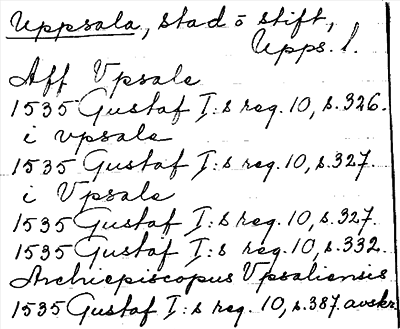 Uppsala, stad o stift,
Upps. l.
Aff Vpsale
1535 Gustaf I:s reg. 10, s. 326.
i vpsale
1535 Gustaf I:s reg. 10, s. 327.
i Vpsale
1535 Gustaf I:s reg. 10, s. 327.
1535 Gustaf I:s reg. 10, s. 332.
Archiepiscopus Vpsaliensis
1535 Gustaf I:s reg. 10, s. 387. avskr.